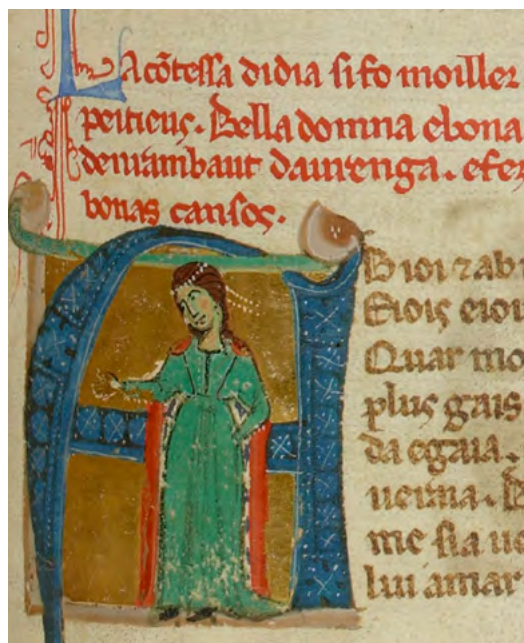 La cõtessa didia si fo moiller
peitieus. Bella domna ebona
denrambaut daurenga. efez
bonas cansos.
A
B ioi ⁊ ab i
Eiois eioi
Quar mo
plus gais
da egaia.
ueraia. E
me sia ue
lui amar